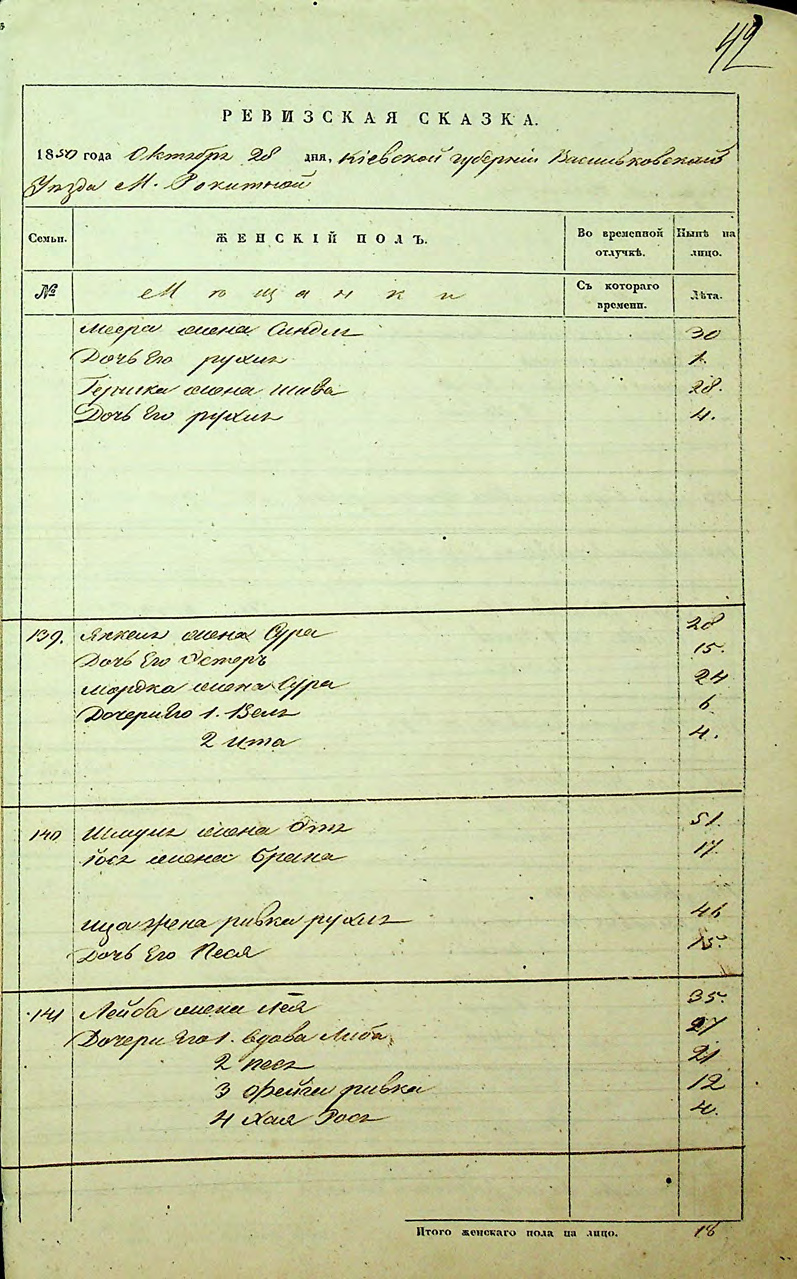 42
РЕВИЗСКАЯ СКАЗКА.
1850 года Октября 28 дня, Кіевской губерніи Васильковскаго
Уѣзда М. Рокитной
Семьи. ЖЕНСКІЙ ПОЛЪ. Во временной отлучкѣ. Нынѣ на лицо.
№ Мѣщанки Съ котораго времени. Лѣта.
Меера жена Синдля 30
Дочь Его рухля 1.
жена Шива 28.
Дочь Его рухля 4.
139. Янкеля жена Сура 28
Дочь Его Эстеръ 15.
Мордка жена Сура 24
Дочери Его 1. Бейля 6
2 Ита 4.
140 Шмуля жена 51.
жена Брана 17
Ица Жена ривка рухля 46
Дочь Его Песя 15.
141 Лейба жена Лея 35.
Дочери Его 1. вдова Либа 27
2 Песя 21
3 Фейга ривка 12
4 Хая 4.
Итого женскаго пола на лицо. 18